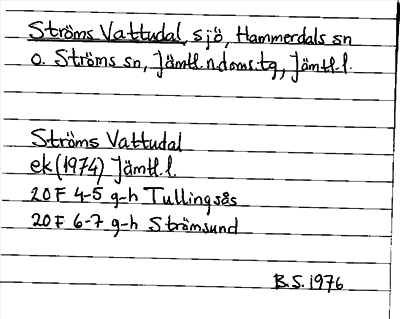 Ströms Vattudal, sjö, Hammerdals sn
o. Ströms sn, Jämtl. n. doms.tg, Jämtl. l.
Ströms Vattudal
ek (1974) Jämtl. l.
20 F 4-5 g-h Tullingsås
20 F 6-7 g-h Strömsund
B.S. 1976